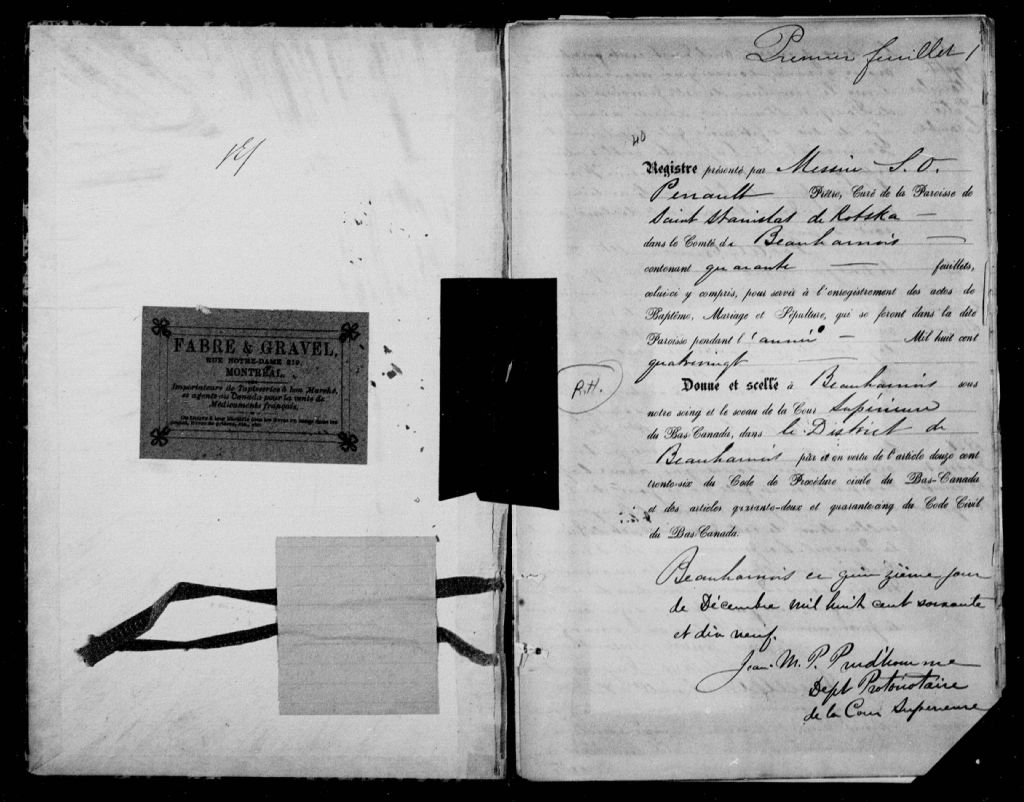 Premier feuillet 1
40
Registre présenté par Messire S. O.
Perrault Prêtre, Curé de la Paroisse de
Saint Stanislas de Kotska —
dans le Comté de Beauharnois —
contenant quarante — feuillets,
celui-ci y compris, pour servir à l'enregistrement des actes de
Baptême, Mariage et Sépulture, qui se feront dans la dite
Paroisse pendant l'année — Mil huit cent
quatrevingt —
P.H.
Donné et scellé à Beauharnois sous
notre seing et le sceau de la Cour Supérieure
du Bas-Canada, dans le District de
Beauharnois par et en vertu de l'article douze cent
trente-six du Code de Procédure civile du Bas-Canada
et des articles quarante-deux et quarante-cinq du Code Civil
du Bas-Canada.
Beauharnois ce quinzième jour
de Décembre mil huit cent soixante
et dix neuf.
Jean M. P. Prud'homme
Dept Protonotaire
de la Cour Superieure
FABRE & GRAVEL,
RUE NOTRE-DAME 219,
MONTREAL.
Importateurs de Tapisseries à bon Marché,
et agents au Canada pour la vente de
Médicaments français.